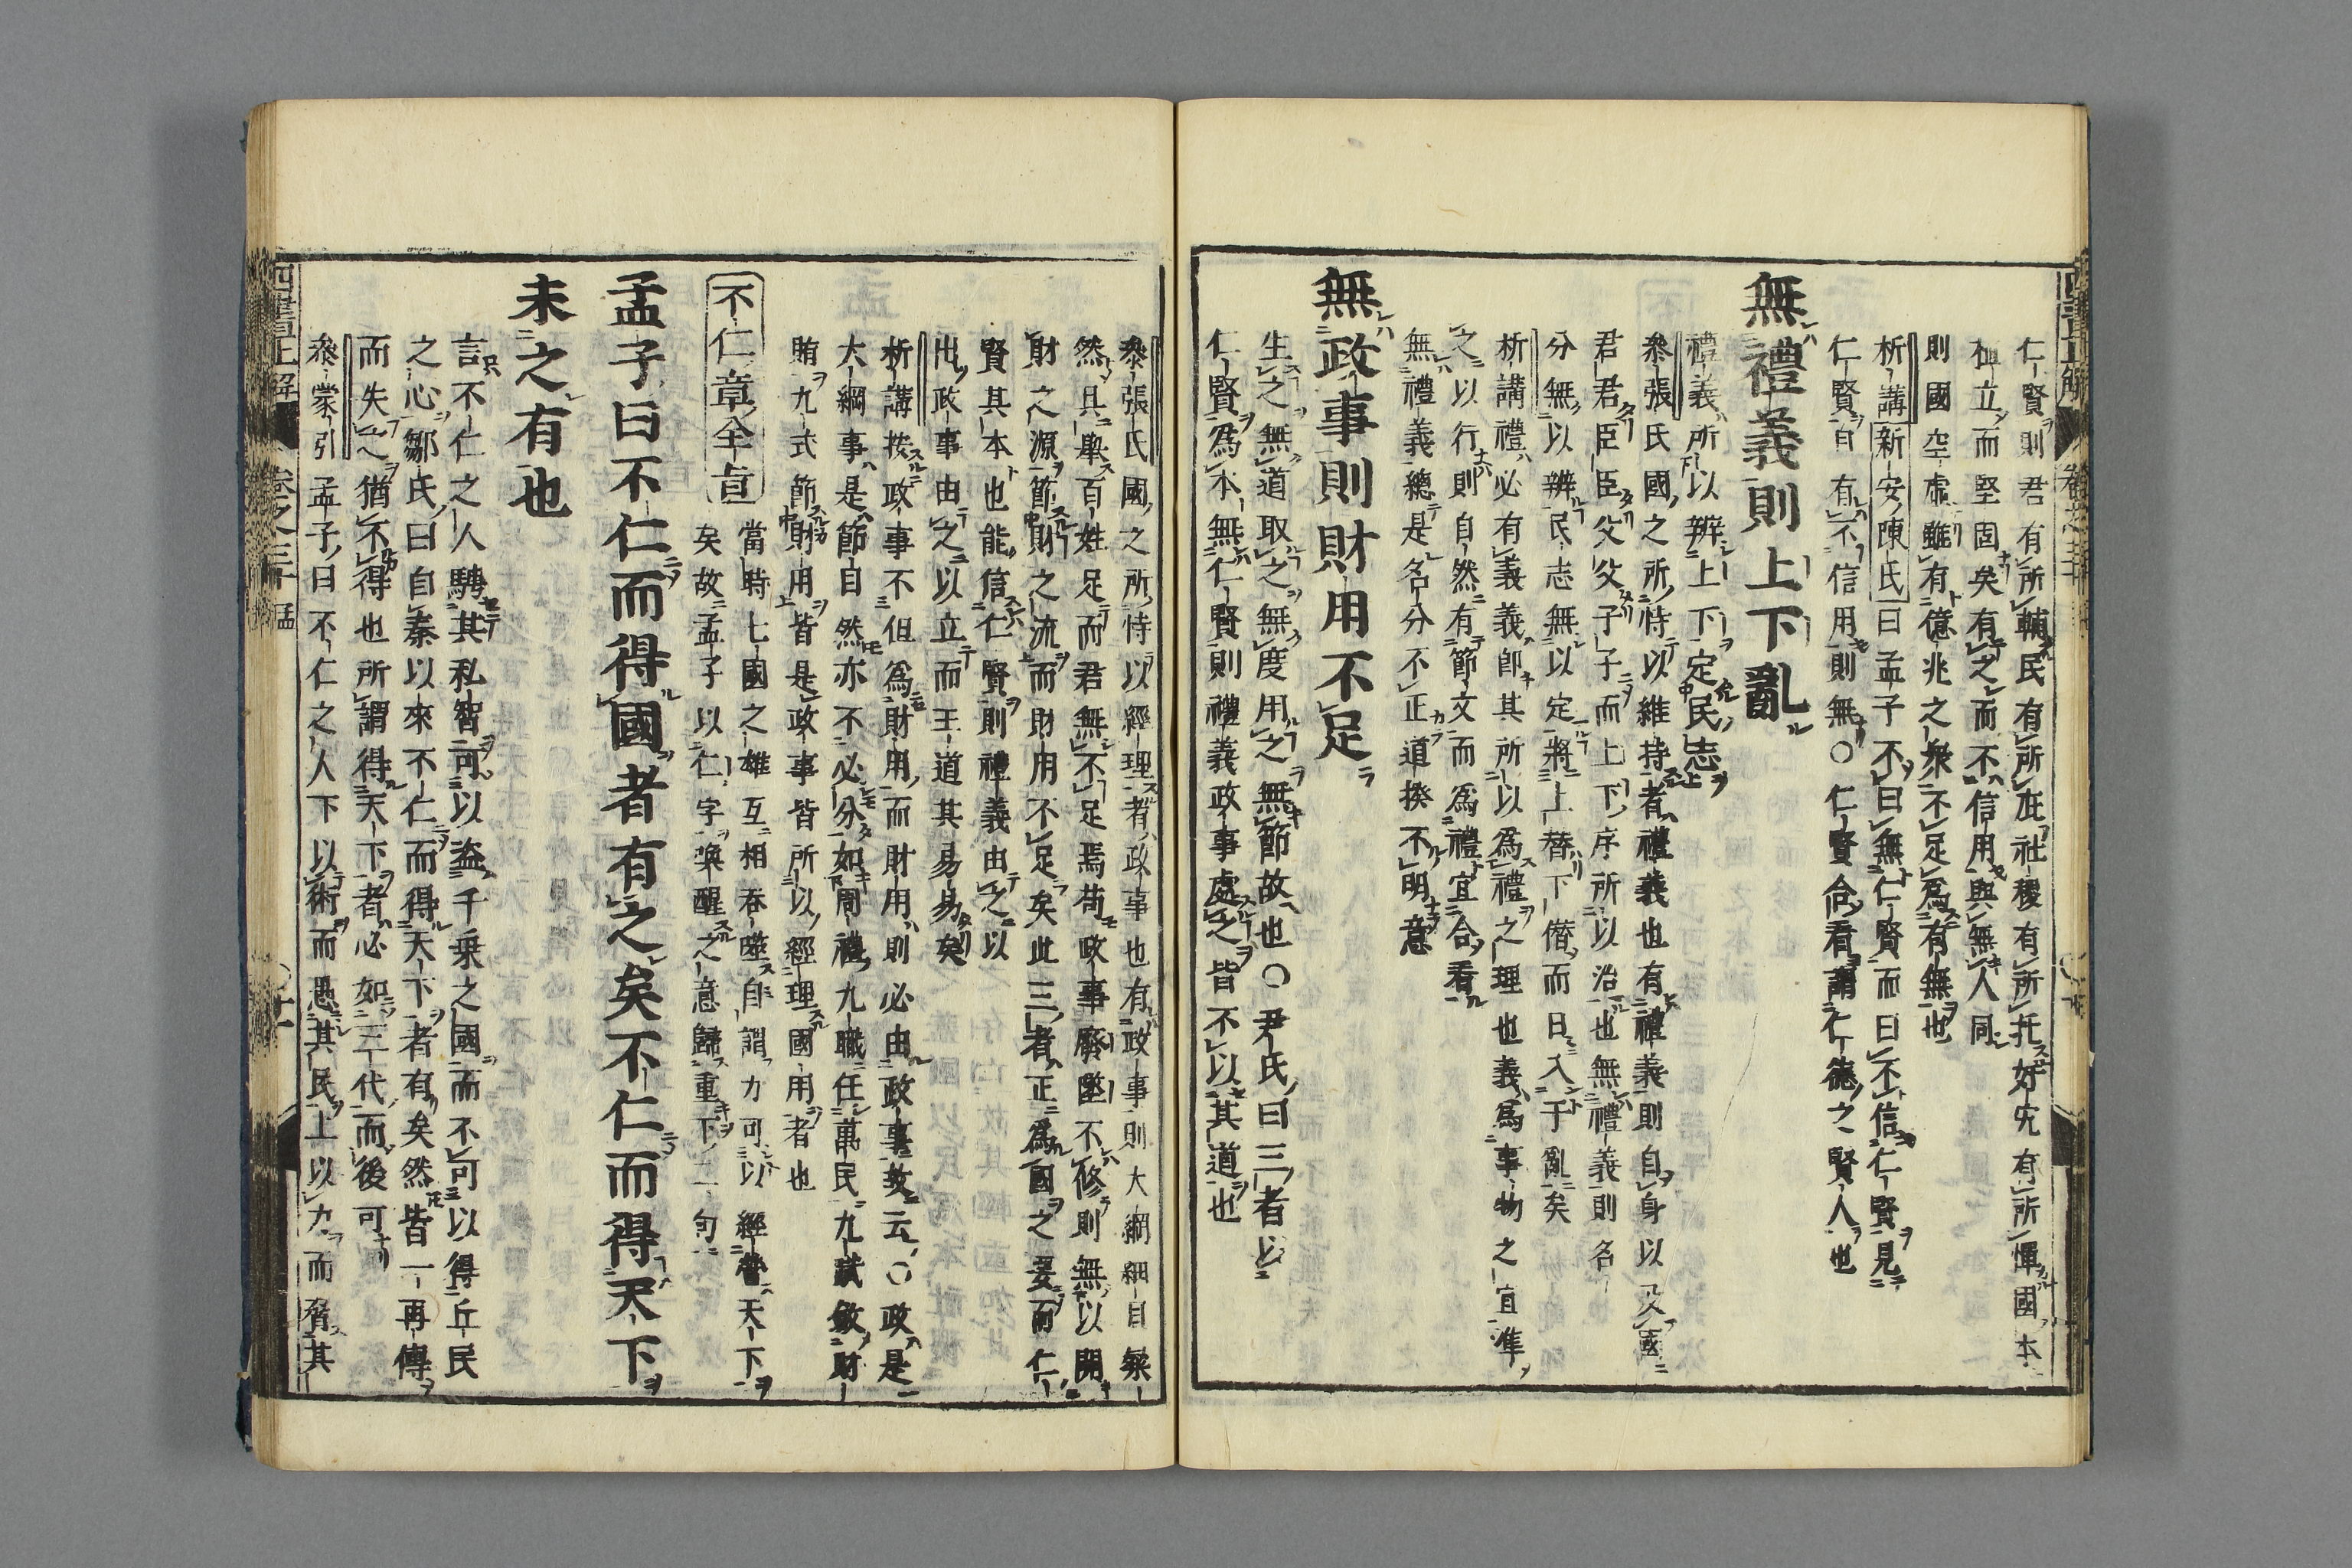 仁賢則君有所輔民有所庇社稷有所托奸宄有所憚國本
植立而堅固矣有之而不信用與無人同
則國空虛雖有億兆之衆不足爲有無也
析講新安陳氏曰孟子不曰無仁賢而曰不信仁賢見
仁賢自有不信用則無○仁賢合看謂仁德之賢人也
無禮義則上下亂
禮義所以辨上下定民志
參張氏國之所恃以維持者禮義也有禮義則自身以及國
君君臣臣父父子子而上下序所以治也無禮義則名
分無以辨民志無以定將上替下僭而日入于亂矣
析講禮必有義義卽其所以爲禮之理也義爲事物之宜準
之以行則自然有節文而爲禮宜合看
無禮義總是名分不正道揆不明意
無政事則財用不足
生之無道取之無度用之無節故也○尹氏曰三者以
仁賢爲本無仁賢則禮義政事處之皆不以其道也
參張氏國之所恃以經理者政事也有政事則大綱細目粲
然具舉百姓足而君無不足焉苟政事廢墜不修則無以開
財之源節財之流而財用不足矣此三者正爲國之要而仁
賢其本也能信仁賢則禮義由之以
出政事由之以立而王道其易易矣
析講按政事不但爲財用而財用則必由政事故云○政是
大綱事是節目然亦不必分如周禮九職任萬民九賦斂財
賄九式節財用皆是政事皆所以經理國用者也
不仁章全旨
當時七國之雄互相吞噬自謂力可以經營天下
矣故孟子以仁字喚醒之意歸重下二句
孟子曰不仁而得國者有之矣不仁而得天下
未之有也
言不仁之人騁其私智可以盜千乘之國而不可以得丘民
之心鄒氏曰自秦以來不仁而得天下者有矣然皆一再傳
而失之猶不得也所謂得天下者必如三代而後可
參蒙引孟子曰不仁之人下以術而愚其民上以力而脅其
四書正解 卷之三十 孟